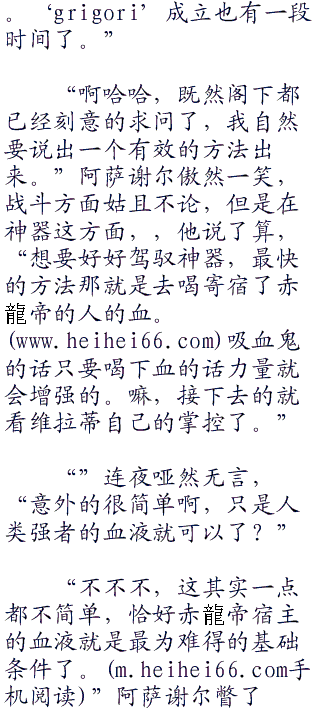 。‘grigori’成立也有一段
时间了。”
“啊哈哈，既然阁下都
已经刻意的求问了，我自然
要说出一个有效的方法出
来。”阿萨谢尔傲然一笑，
战斗方面姑且不论，但是在
神器这方面，，他说了算，
“想要好好驾驭神器，最快
的方法那就是去喝寄宿了赤
龍帝的人的血。
(www.heihei66.com)吸血鬼
的话只要喝下血的话力量就
会增强的。嘛，接下去的就
看维拉蒂自己的掌控了。”
“”连夜哑然无言，
“意外的很简单啊，只是人
类强者的血液就可以了？”
“不不不，这其实一点
都不简单，恰好赤龍帝宿主
的血液就是最为难得的基础
条件了。(m.heihei66.com手
机阅读)”阿萨谢尔瞥了